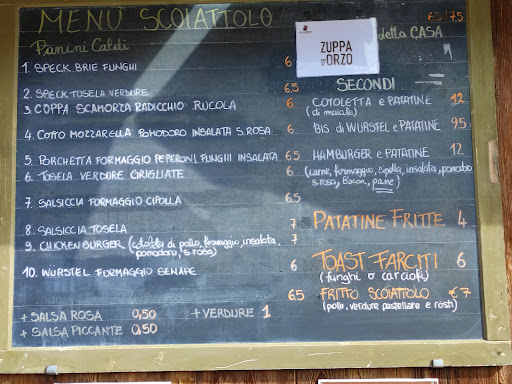 MENÙ SCOIATTOLO
6.5/7.5
Panini Caldi
ZUPPA
D'ORZO
della CASA
1. SPECK BRIE FUNGHI 6
2. SPECK TOSELA VERDURE 6.5
3. COPPA SCAMORZA RADICCHIO RUCOLA 6
4. COTTO MOZZARELLA POMODORO INSALATA S. ROSA 6
5. PORCHETTA FORMAGGIO PEPERONI FUNGHI INSALATA 6.5
6. TOSELA VERDURE GRIGLIATE 6
7. SALSICCIA FORMAGGIO CIPOLLA 6.5
8. SALSICCIA TOSELA 7
9. CHICKEN BURGER (cotoletta di pollo, formaggio, insalata, 7
pomodoro, s. rosa)
10. WÜRSTEL FORMAGGIO SENAPE 6
6.5
+ SALSA ROSA 0,50
+ VERDURE 1
+ SALSA PICCANTE 0,50
SECONDI
COTOLETTA E PATATINE 12
(di maiale)
BIS di WURSTEL e PATATINE 9.5
HAMBURGER e PATATINE 12
(carne, formaggio, cipolla, insalata, pomodoro
s. rosa, Bacon, pane)
PATATINE FRITTE 4
TOAST FARCITI 6
(funghi o carciofi)
FRITTO SCOIATTOLO €7
(pollo, verdure pastellate e rosti)